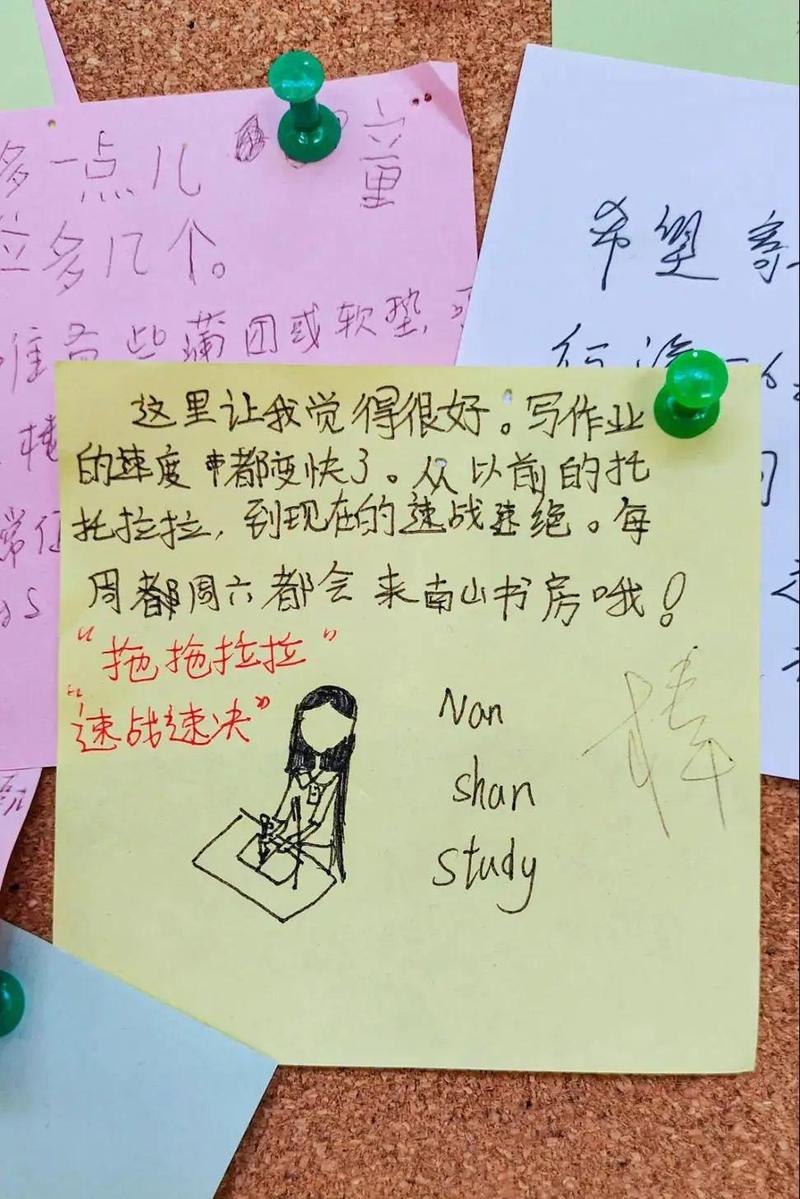 多一点儿
位多几个。
准备些蒲团或软垫,
希望
这里让我觉得很好。写作业
的速度都变快了。从以前的托
托拉拉,到现在的速战速绝。每
周都周六都会来南山书房哦!
“拖拖拉拉”
“速战速决”
Nan
shan
study
棒